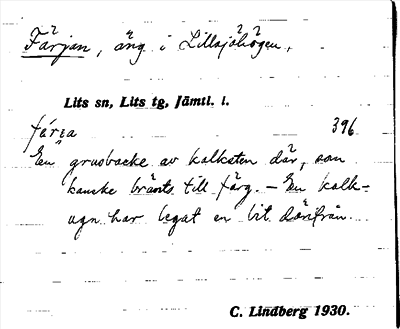 Färjan, äng i Lillsjöhögen,
Lits sn, Lits tg, Jämtl. l.
färᴣa 396
En grusbacke av kalksten där, som
kanske bränts till färg. – En kalk-
ugn har legat en bit därifrån.
C. Lindberg 1930.